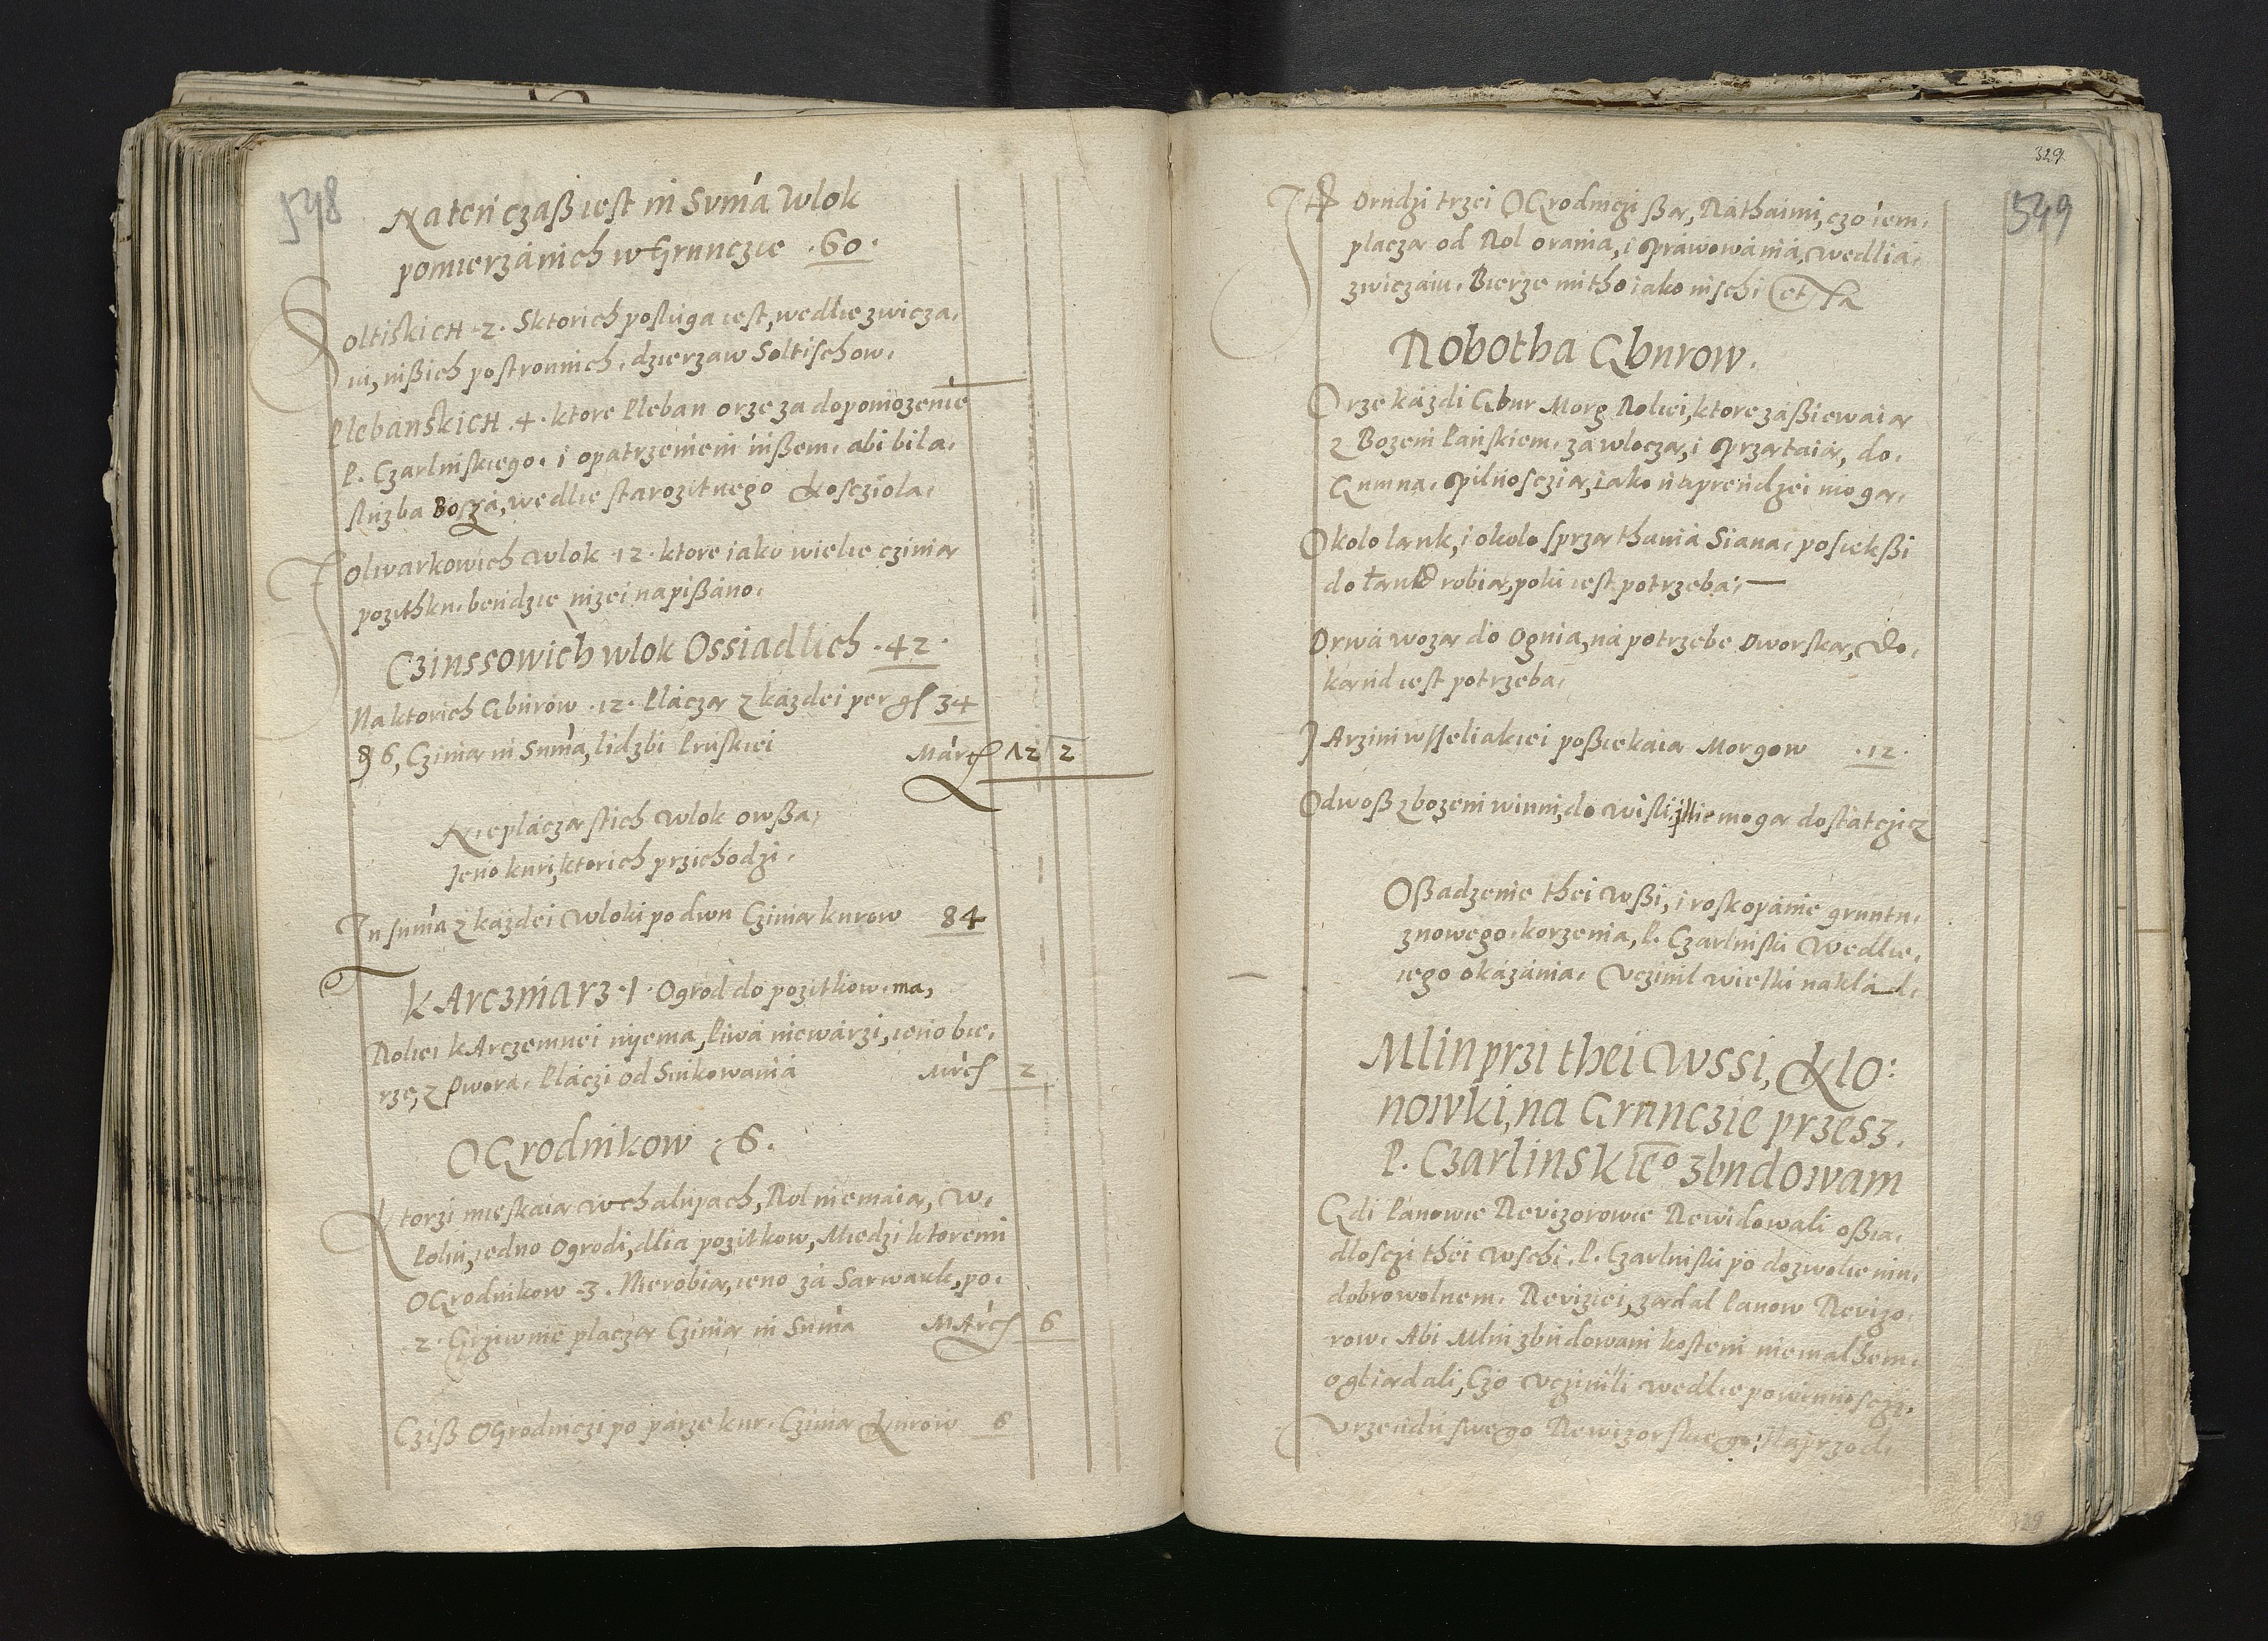 548
Na ten czaß iest in Suma Wlok
pomierzanich w Grunczie .60.
Soltiskich .2. Sktorich posluga iest, wedlie zwicza,
iu, inßich postronnich, dzierzaw Soltischow,
Plebanskich .4. ktore Pleban orze za doponiozenie
P. Czarlinskiego, i opatrzeniem inßem, abi bila,
sluzba Bosza, wedlie starozitnego Kosciola,
Folwarkowich Wlok .12. ktore iako wielie cziniar
pozithku, bendzie nizei napißano,
Czinssowich wlok Ossiadlich .42.
Na ktorich Gburow .12. Placzar z kazdei per gl 34
ß 6, Cziniar in Suma, lidzbi Pruskiei Marcß 12 2
Nieplaczar stich Wlok owßa,
Jeno kuri, ktorich przichodzi,
In suma z kazdei Wloki po dwu Cziniar kurow 84
KArczmarz .1. Ogrod do pozitkow, ma,
Roliei kArczemnei nyema, Piwa niewarzi, ieno bie,
rze, z Dwora, Placzi od Sinkowania Mrcß 2
OGrodnikow .6.
Ktorzi mieskaiar w chalupach, Rol niemaiar, w,
Poliu, iedno Ogrodi, dlia pozitkow, Miedzi ktoremi
OGrodnikow .3. Nierobiar, ieno za Sarwark, po,
.2. Grziwnie placzar Cziniar in Suma MArcß 6
Cziß OGrodniczi po parze kur, Cziniar Kurow 6
329
549
Drudzi trzei OGrodniczi ßar, Rathaimi, czo iem,
placzar od Rol orania, i sprawowania, wedlia,
zwiczaiu, Bierze mitho iako inschi etc
Robotha Gburow.
Orze kazdi Gbur Morg Roliei, ktore zaßiewaiar
z Bozem Panskiem, zawloczar, i sprzartaiar, do,
Gumna, spilnoscziar, iako naprendzei mogar,
Okolo lank, i okolo sprzarthania Siana, posiekßi
do lanki robiar, poki iest potrzeba,
Drwa wozar do Ognia, na potrzebe Dworskar, Do,
kand iest potrzeba,
JArzini wsseliakiei poßiekaia Morgow .12.
Odwoß zbozem winni, do Wisli, illie mogar dostatczicz
Oßadzenie thei Wßi, i roskopanie gruntu,
znowego, korzenia, P. Czarlinski Wedlie,
iego okazania, Vczinil wielki naklad,
Mlin przi thei Wssi, Klo:
nowki, na Grunczie przesz,
P. Czarlinskieo zbudowam
Gdi Panowie Revizorowie Rewidowali oßia,
dlosczi thei Wschi, P. Czarlinski po dozwolieniu,
dobrowolnem, Reviziei, zardal Panow Revizo,
row, Abi Mlin zbudowani kostem niemalhem,
ogliardali, Czo Vczinili wedlie powinnosczi,
Vrzendu swego Rewizorskiego: Naprzod,
329